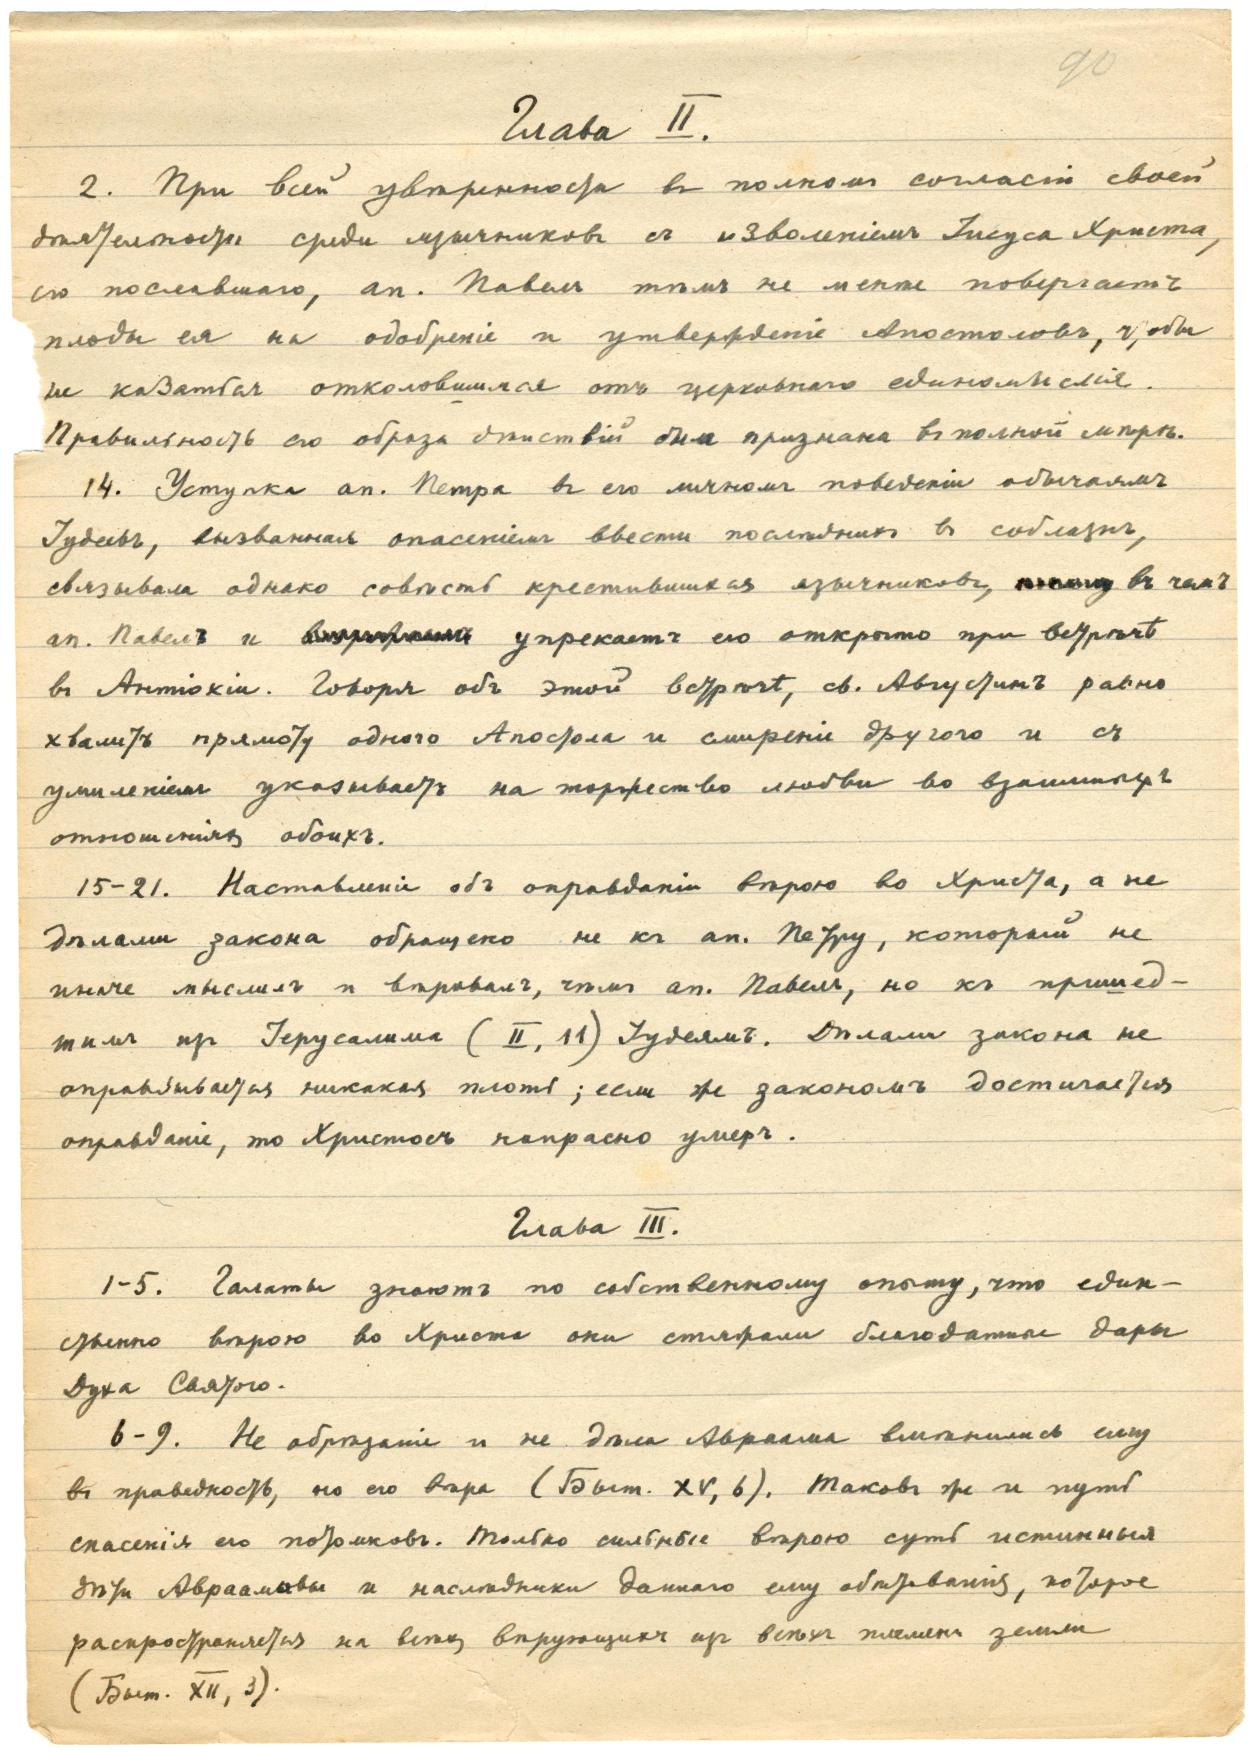 90
Глава II.
2. При всей увѣренности въ полномъ согласіи своей
дѣятельности среди язычниковъ съ изволеніемъ Іисуса Христа,
его пославшаго, ап. Павелъ тѣмъ не менѣе повергаетъ
плоды ея на одобреніе и утвержденіе Апостоловъ, чтобы
не казаться отколовшимся отъ церковнаго единомыслія.
Правильность его образа дѣйствій была признана въ полной мѣрѣ.
14. Уступка ап. Петра въ его личномъ поведеніи обычаямъ
Іудеевъ, вызванная опасеніемъ ввести послѣднихъ въ соблазнъ,
связывала однако совѣсть крестившихся язычниковъ, въ чемъ
ап. Павелъ и упрекаетъ его открыто при встрѣчѣ
въ Антіохіи. Говоря объ этой встрѣчѣ, св. Августинъ равно
хвалитъ прямоту одного Апостола и смиреніе другого и съ
умиленіемъ указываетъ на торжество любви во взаимныхъ
отношеніяхъ обоихъ.
15-21. Наставленіе объ оправданіи вѣрою во Христа, а не
дѣлами закона обращено не къ ап. Петру, который не
иначе мыслилъ и вѣровалъ, чѣмъ ап. Павелъ, но къ пришед-
шимъ изъ Іерусалима (II, 11) Іудеямъ. Дѣлами закона не
оправдывается никакая плоть; если же закономъ достигается
оправданіе, то Христосъ напрасно умеръ.
Глава III.
1-5. Галаты знаютъ по собственному опыту, что един-
ственно вѣрою во Христа они стяжали благодатные дары
Духа Святого.
6-9. Не обрѣзаніе и не дѣла Авраама вмѣнились ему
въ праведность, но его вѣра (Быт. XV, 6). Таковъ же и путь
спасенія его потомковъ. Только сильные вѣрою суть истинныя
дѣти Авраамовы и наслѣдники даннаго ему обѣтованія, которое
распространяется на всѣхъ вѣрующихъ изъ всѣхъ племенъ земли
(Быт. XII, 3).